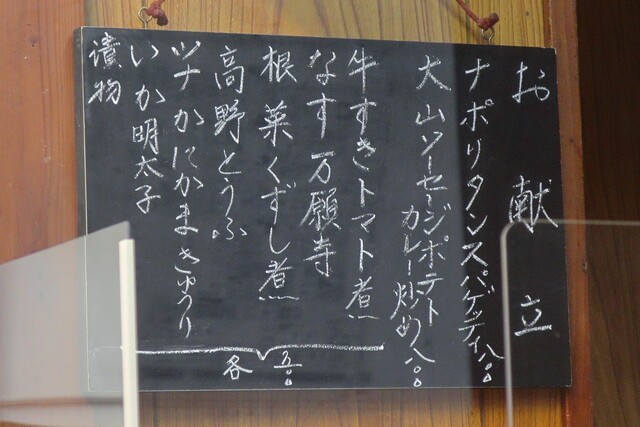 お献立
ナポリタンスパゲッティ 八〇〇
大山ソーセージポテト
カレー炒め 八〇〇
牛すきトマト煮
なす万願寺
根菜くずし煮
高野とうふ
ツナかにかまきゅうり
いか明太子
漬物
各 五〇〇